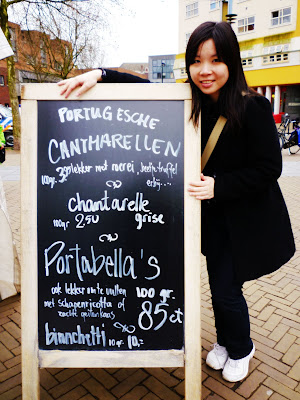 PORTUGESCHE
CANTHARELLEN
100gr. lekker met merei, beetje truffel
erbij....
chantarelle
100gr 250 grise
Portabella's
ook lekker om te vullen 100 gr.
met schapenricotta of 85ct
zachte geitenkaas
bianchetti 100gr 10,-